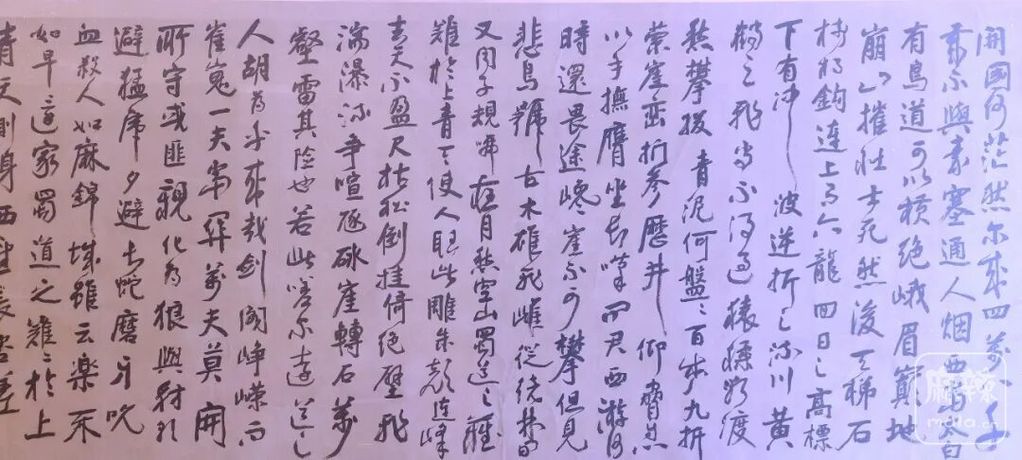 開國何茫然尔來四萬八千
歲不與秦塞通人烟西當太白
有鳥道可以横绝峨眉巅地
崩山摧壮士死然後天梯石
棧相鈎連上有六龍回日之高標
下有冲波逆折之流川黄
鹤之飛尚不得過猿猱欲度
愁攀援青泥何盤々百步九折
萦崖峦扪参歷井仰脅息
以手撫膺坐长嘆问君西游何
時還畏途巉崖不可攀但見
悲鳥號古木雄飛雌從绕林間
又闻子規啼夜月愁空山蜀道之難
難於上青天使人聽此雕朱颜连峰
去天不盈尺枯松倒挂倚绝壁飛
湍瀑流争喧豗砯崖轉石萬
壑雷其险也若此嗟尔遠道之
人胡為乎來哉剑阁峥嵘而
崔嵬一夫當關萬夫莫開
所守或匪親化為狼與豺朝
避猛虎夕避長蛇磨牙吮
血殺人如麻錦城雖云樂不
如早還家蜀道之難々於上
青天側身西望長咨嗟
麻辣
mala.cn